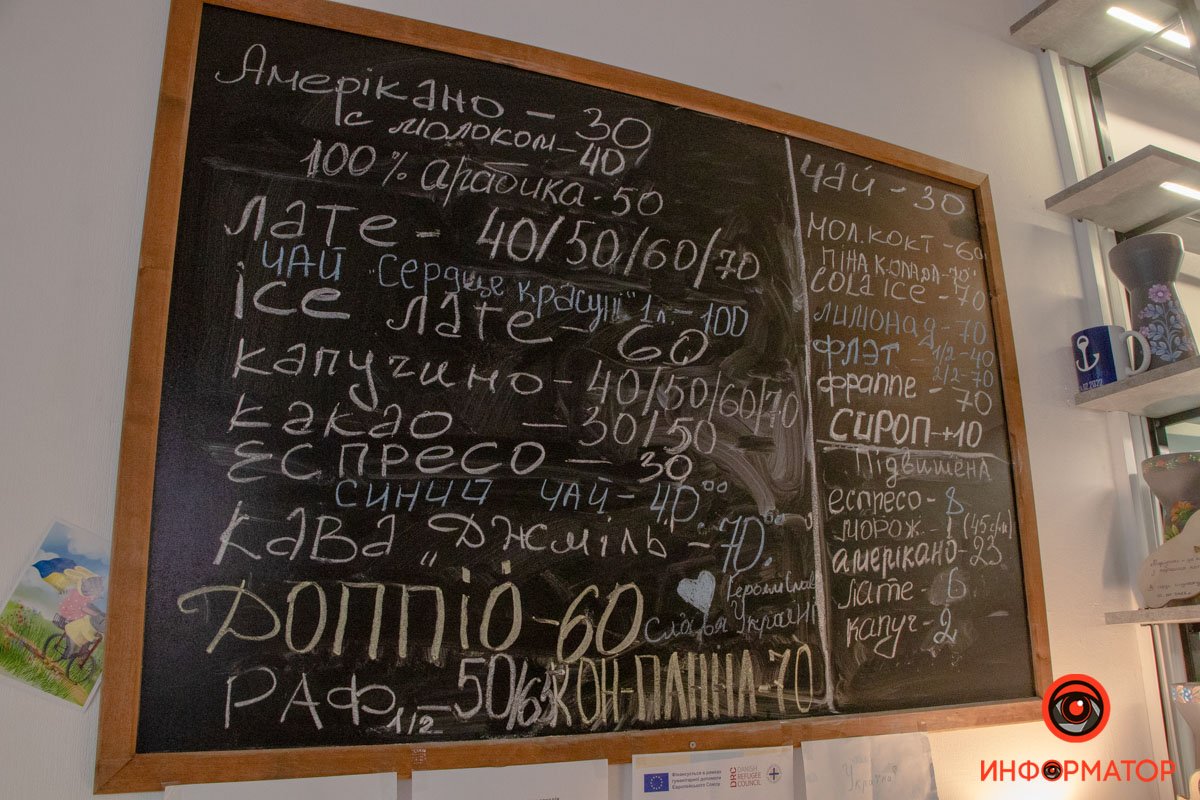 Амерікано - 30
с молоком - 40
100% арабика - 50
Лате - 40/50/60/70
ЧАЙ "Сердце красуні" 1л. - 100
ice Лате - 60
капучино - 40/50/60/70
какао - 30/50
Еспресо - 30
СИНИЙ ЧАЙ - 40.00
Кава "Джміль - 70.
ДОППІО - 60
Героям Слава
Слава Україні
РАФ 1/2 - 50/65
КОН-ПАННА - 70
ЧАЙ - 30
МОЛ. КОКТ - 60
ПІНА КОЛАДА - 70
COLA ICE - 70
ЛИМОНАД - 70
ФЛЭТ - 1/2 - 40
2/2 - 70
фраппе - 70
СИРОП - +10
Підвишена
еспресо - 8
морож. - 1 (45 грн)
амерікано - 23
лате - 6
капуч - 2
Фінансується в рамках
гуманітарної допомоги
Європейського Союзу
DRC DANISH
REFUGEE
COUNCIL
Україна
ИНФОРМАТОР